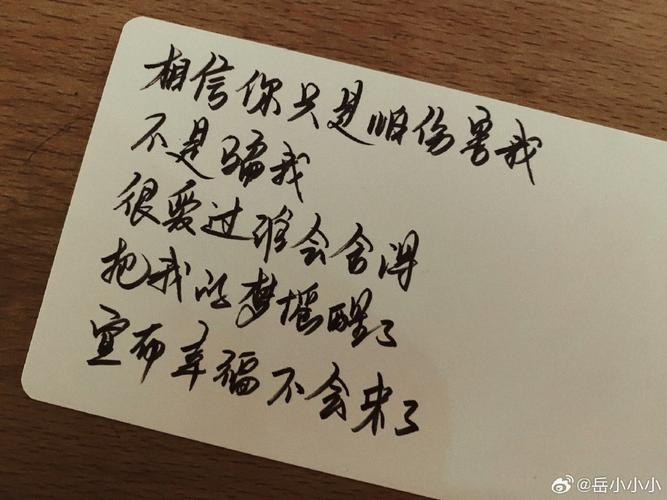 相信你只是怕伤害我
不是骗我
很爱过谁会舍得
把我的梦摇醒了
宣布幸福不会来了
@岳小小小